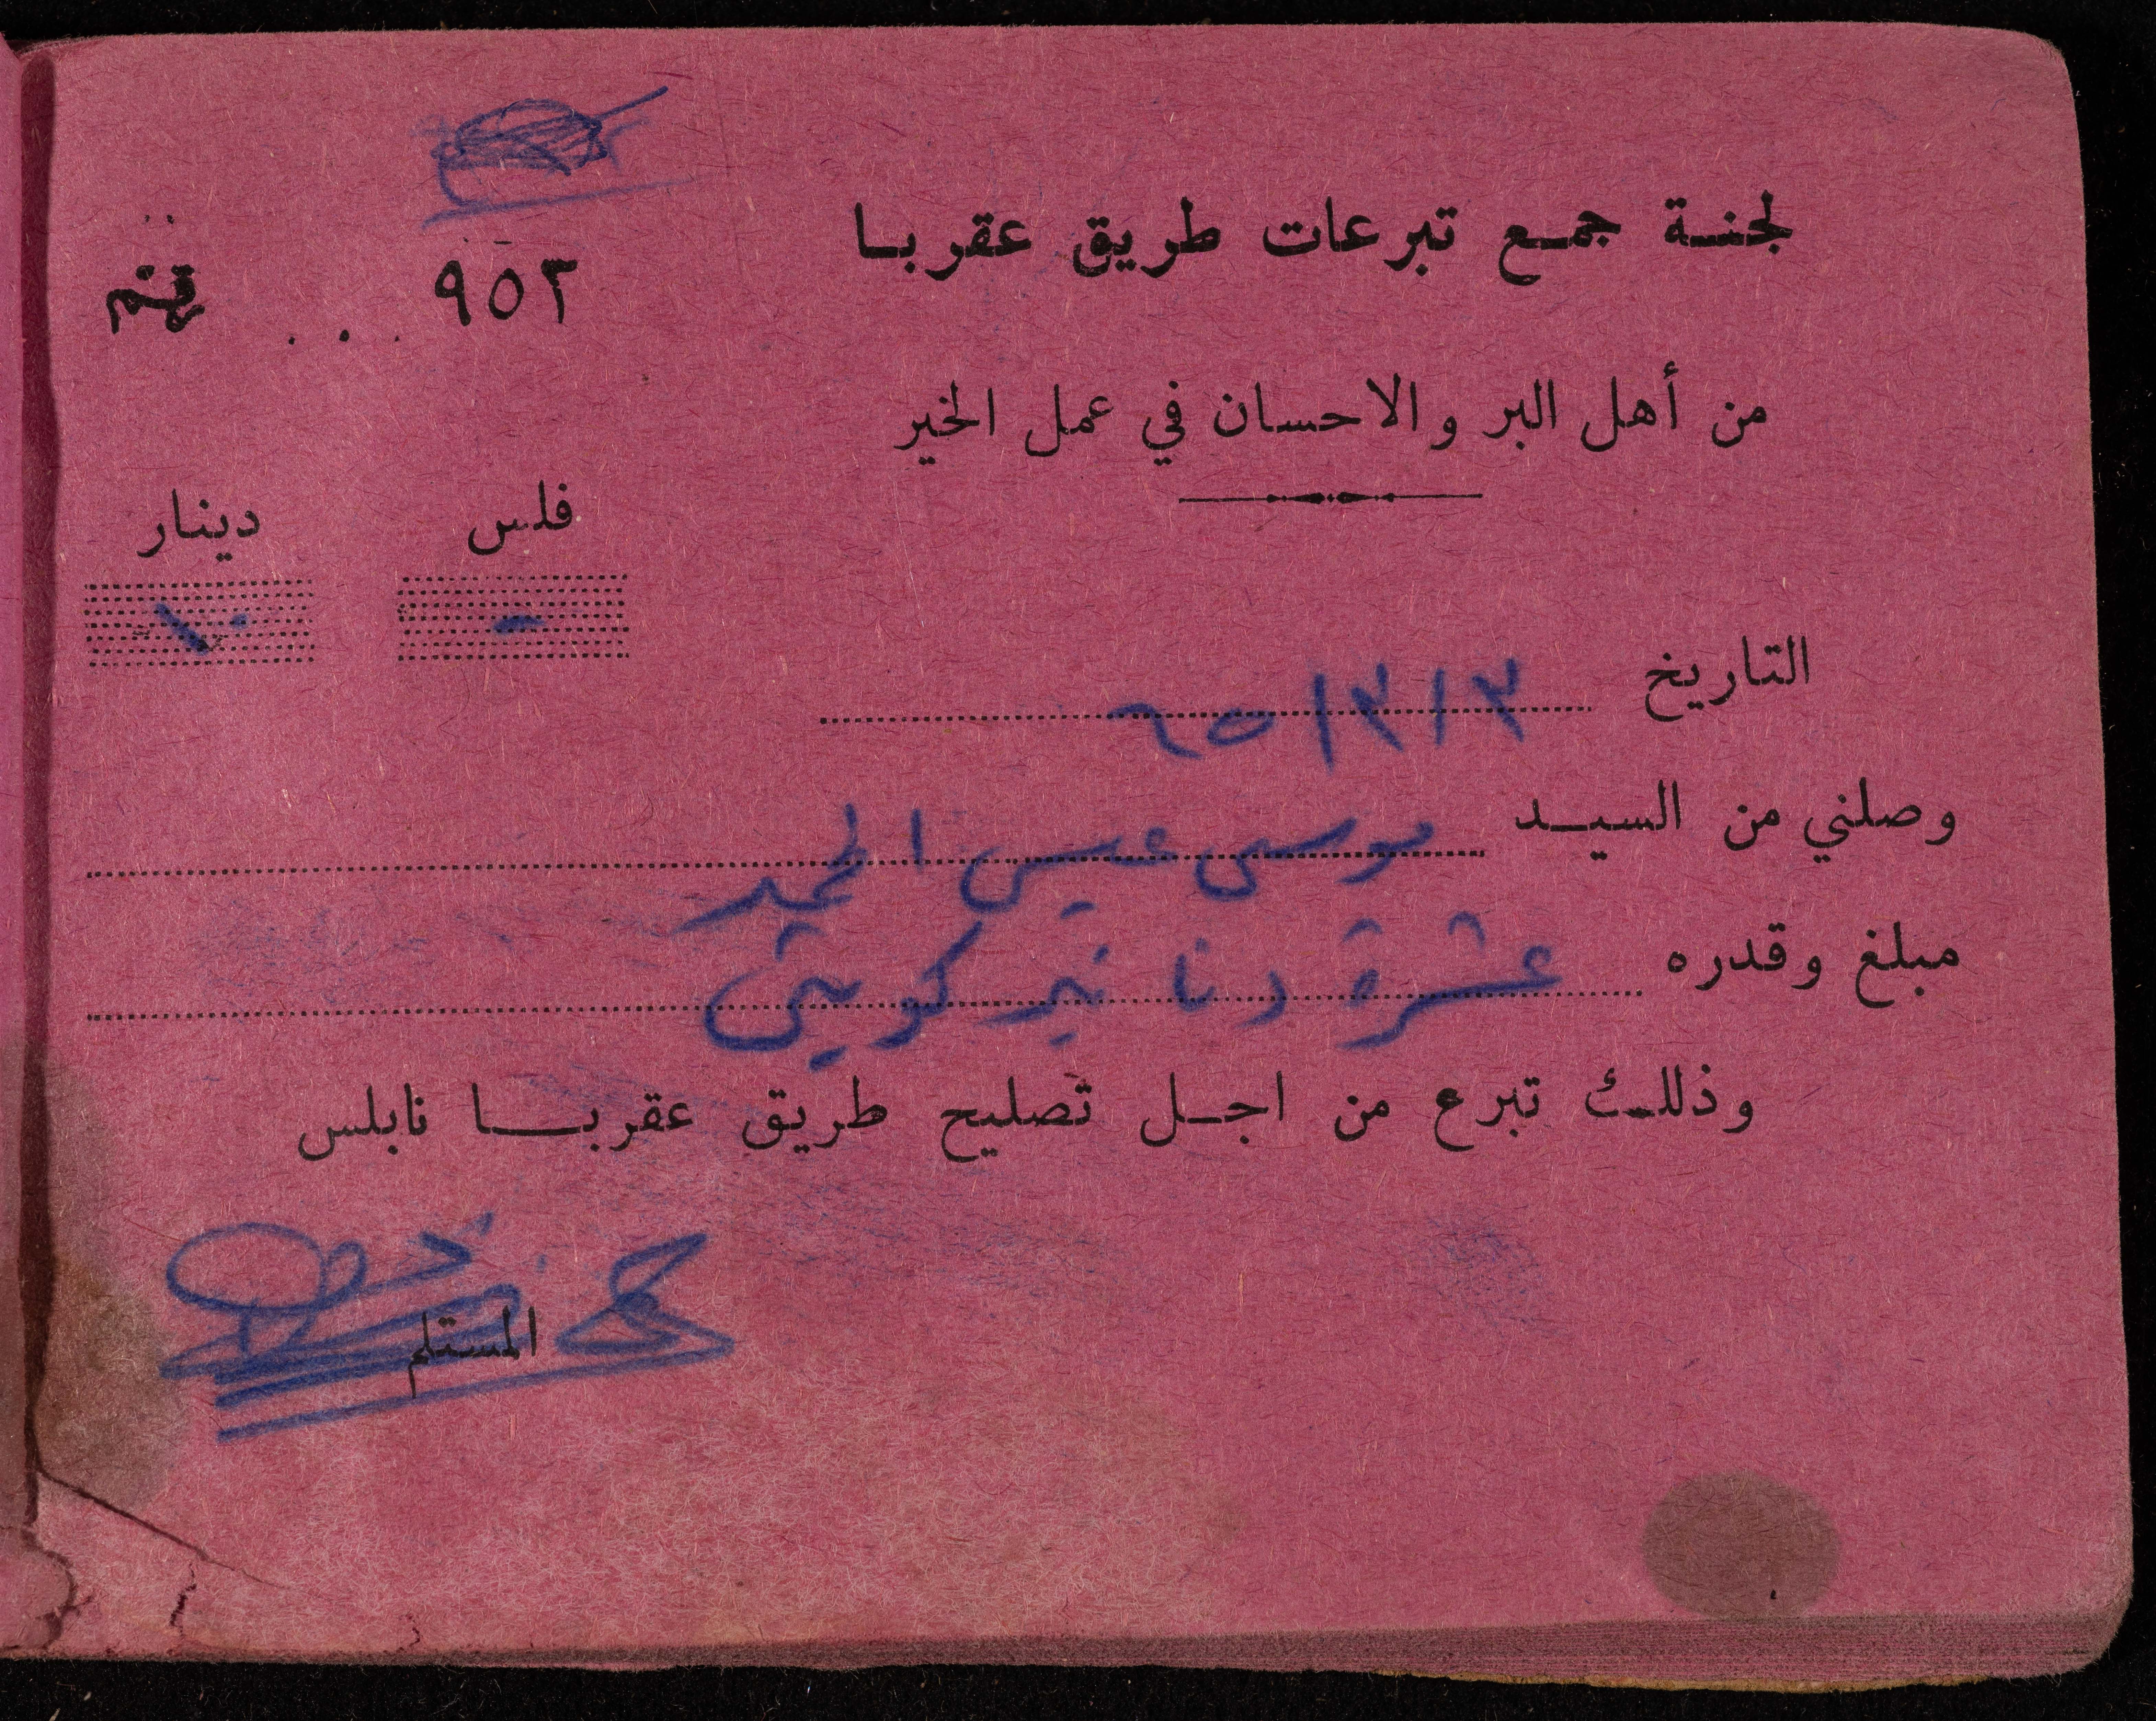 لجنة جمع تبرعات طريق عقربا
٩٥٢
من أهل البر والاحسان في عمل الخير
فلس دينار
- ١٠
التاريخ ٣ / ٣ / ٦٥
وصلني من السيد موسى عيسى المحمد
مبلغ وقدره عشرة دنانير كويتي
وذلك تبرع من اجل تصليح طريق عقربا نابلس
المستلم